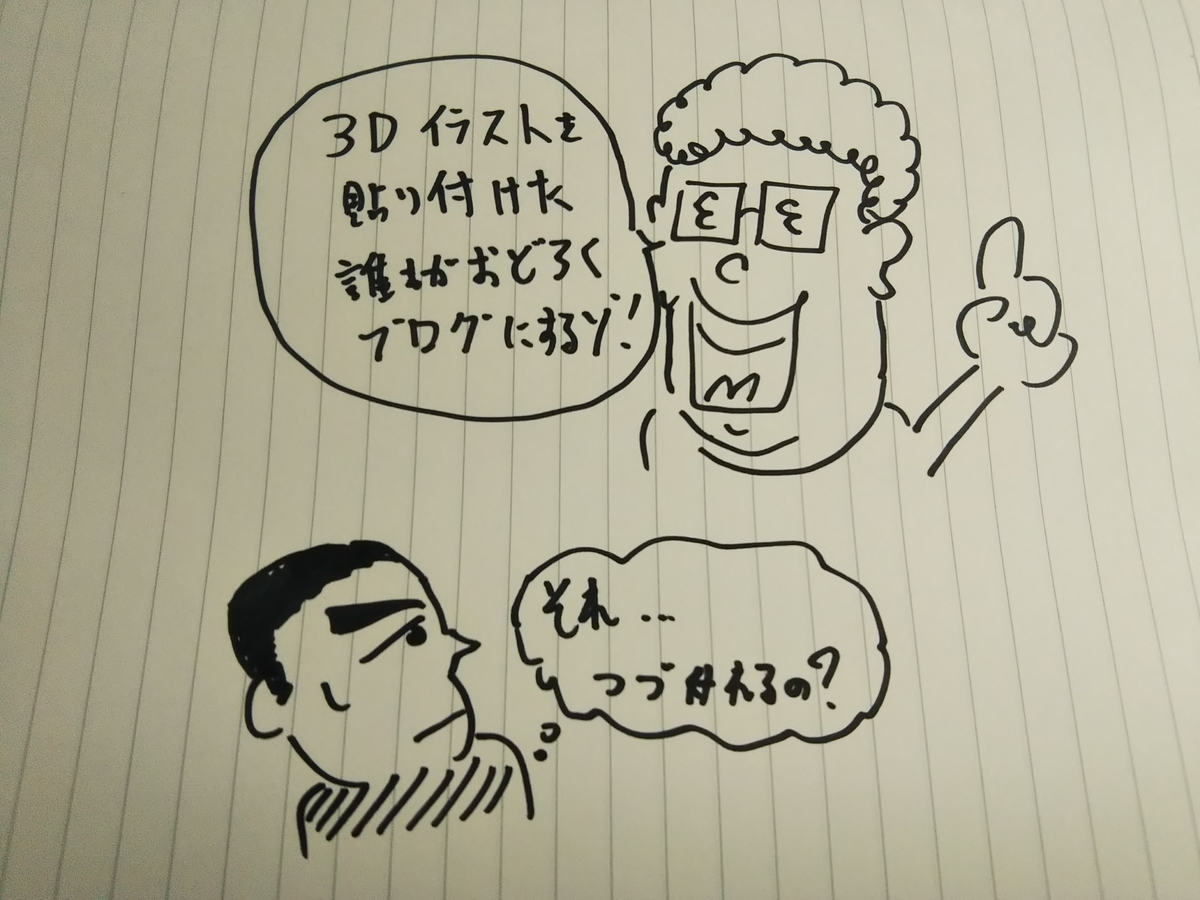 3Dイラストを
貼り付けた
誰もがおどろく
ブログにするゾ!
それ...
つづ付れるの?